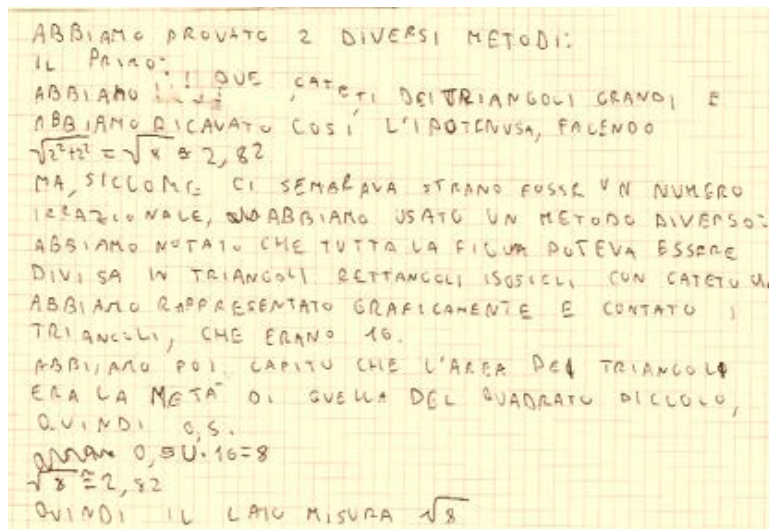 ABBIAMO PROVATO 2 DIVERSI METODI:
IL PRIMO:
ABBIAMO DUE CATETI DEI TRIANGOLI GRANDI E
ABBIAMO RICAVATO COSÍ L'IPOTENUSA, FACENDO
√2²+2² = √8 ≅ 2,82
MA, SICCOME CI SEMBRAVA STRANO FOSSE UN NUMERO
IRRAZIONALE, ABBIAMO USATO UN METODO DIVERSO:
ABBIAMO NOTATO CHE TUTTA LA FIGURA POTEVA ESSERE
DIVISA IN TRIANGOLI RETTANGOLI ISOSCELI CON CATETO
ABBIAMO RAPPRESENTATO GRAFICAMENTE E CONTATO I
TRIANGOLI, CHE ERANO 16.
ABBIAMO POI CAPITO CHE L'AREA DEL TRIANGOLO
ERA LA METÀ DI QUELLA DEL QUADRATO PICCOLO,
QUINDI 0,5.
0,5U·16=8
√8 ≅ 2,82
QUINDI IL LATO MISURA √8